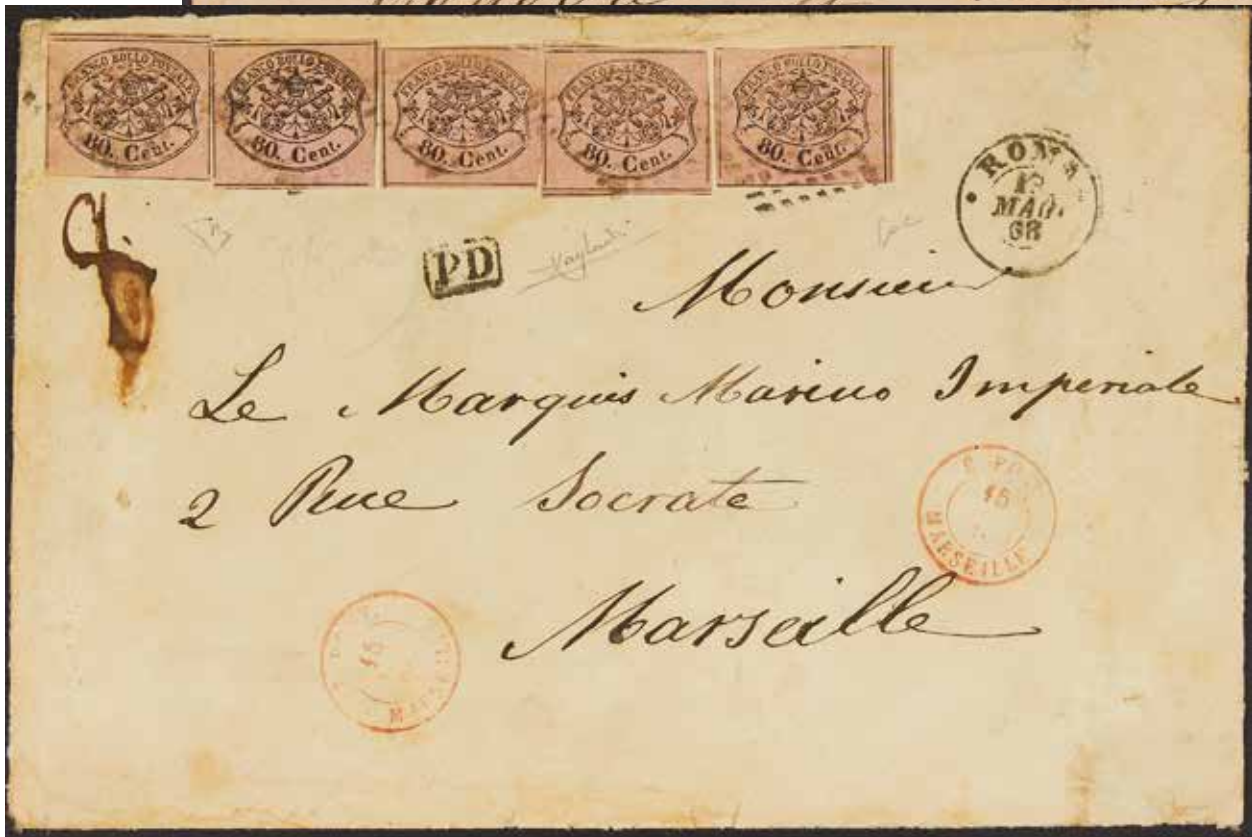 FRANCO BOLLO POSTALE 80. Cent.
FRANCO BOLLO POSTALE 80. Cent.
FRANCO BOLLO POSTALE 80. Cent.
FRANCO BOLLO POSTALE 80. Cent.
FRANCO BOLLO POSTALE 80. Cent.
ROMA
MAG.
68
PD
Monsieur
Le Marquis Marino Imperiale
2 Rue Socrate
Marseille
15
MARSEILLE
15